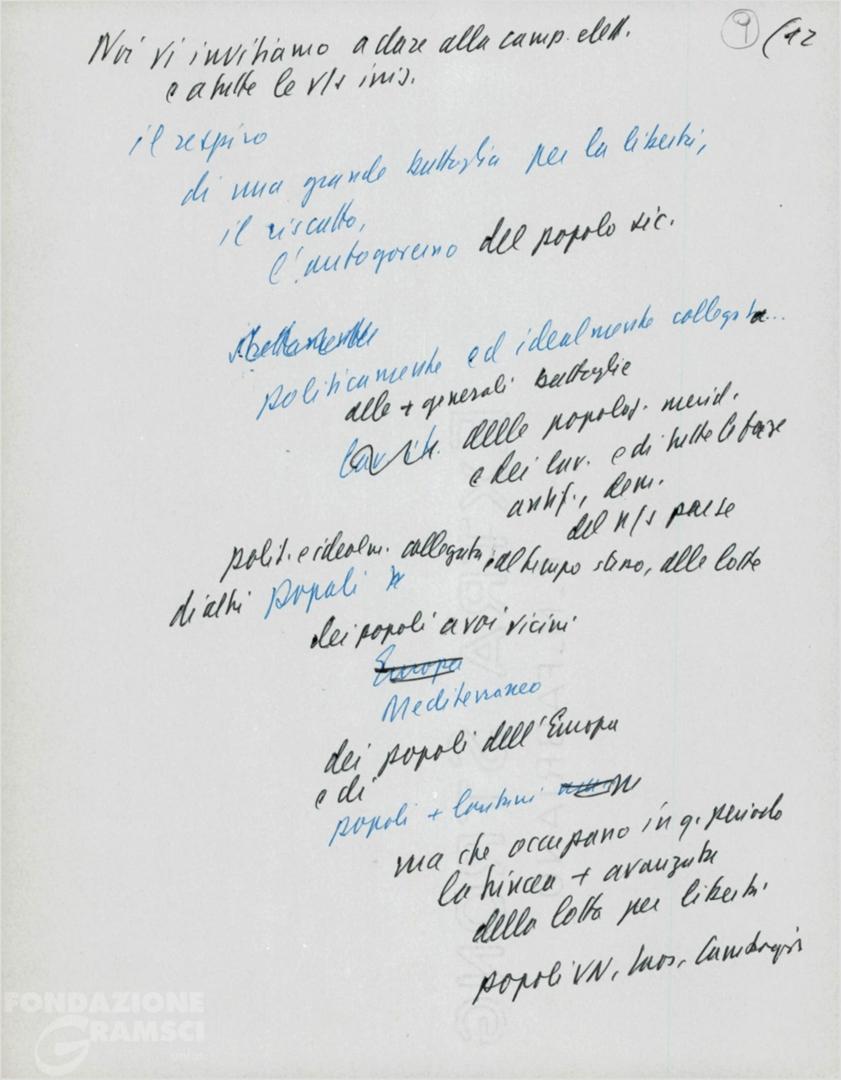 9 (12
Noi vi invitiamo a dare alla camp. elett.
e a tutte le v/s iniz.
il respiro
di una grande battaglia per la libertà,
il riscatto,
l'autogoverno del popolo sic.
strettamente
politicamente ed idealmente collegata...
alle + generali battaglie
delle popolaz. merid.
e dei lav. e di tutte le forze
antif., dem.
del n/s paese
polit. e idealm. collegata, al tempo stesso, alle lotte
di altri popoli
dei popoli a voi vicini
Europa
Mediterraneo
dei popoli dell'Europa
e di
popoli + lontani
ma che occupano in q. periodo
la trincea + avanzata
della lotta per libertà.
popoli VN, Laos, Cambogia
FONDAZIONE
GRAMSCI
onlus